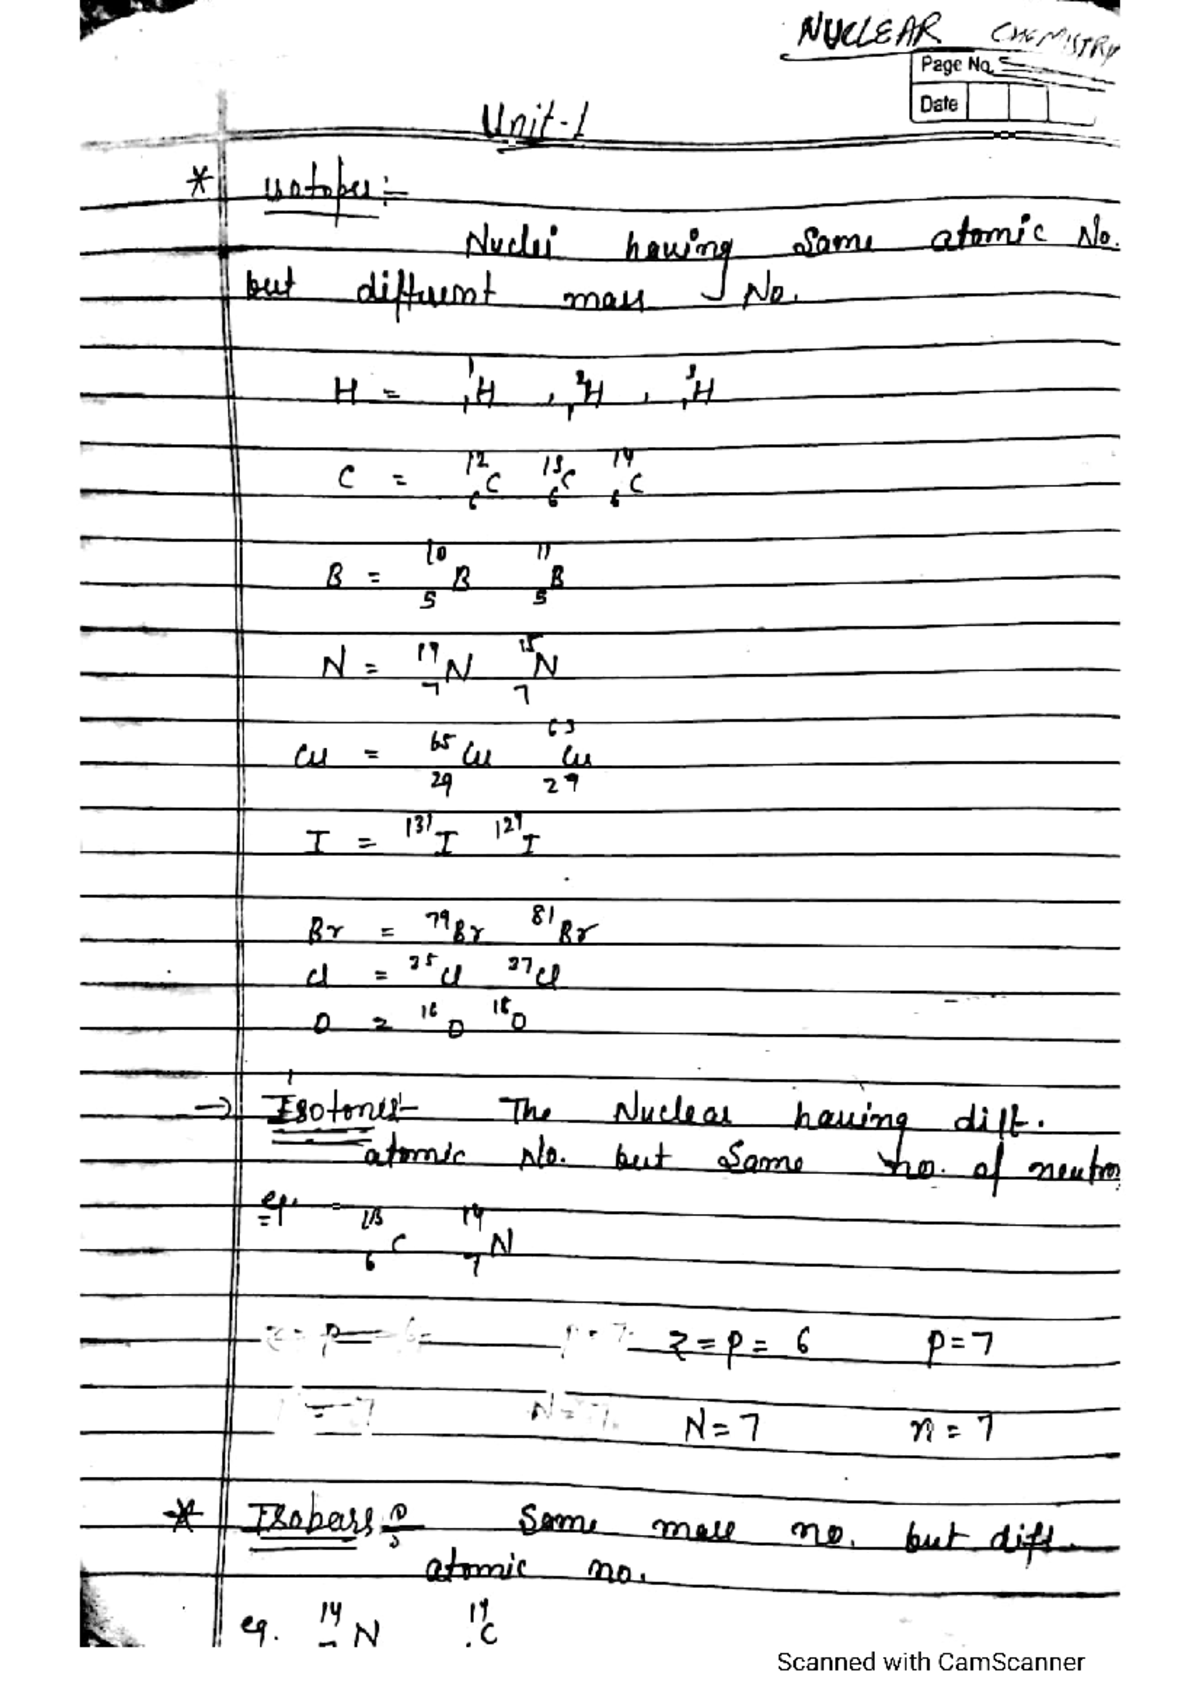 NUCLEAR CHEMISTRY
Page No.
Date
Unit-1
* isotopes :-
Nuclei having Same atomic No.
but different mass No.
H = ¹₁H , ²₁H , ³₁H
C = ¹²₆C ¹³₆C ¹⁴₆C
B = ¹⁰₅B ¹¹₅B
N = ¹⁴₇N ¹⁵₇N
Cu = ⁶⁵₂₉Cu ⁶³₂₉Cu
I = ¹³¹I ¹²⁷I
Br = ⁷⁹Br ⁸¹Br
Cl = ³⁵Cl ³⁷Cl
O = ¹⁶O ¹⁸O
→ Isotones:- The Nuclear having diff.
atomic No. but Same no. of neutron
eg. ¹³₆C ¹⁴₇N
z = p = 6 p = 7
N = 7 n = 7
* Isobars :- Same mass no. but diff.
atomic no.
eg. ¹⁴₇N ¹⁴C
Scanned with CamScanner